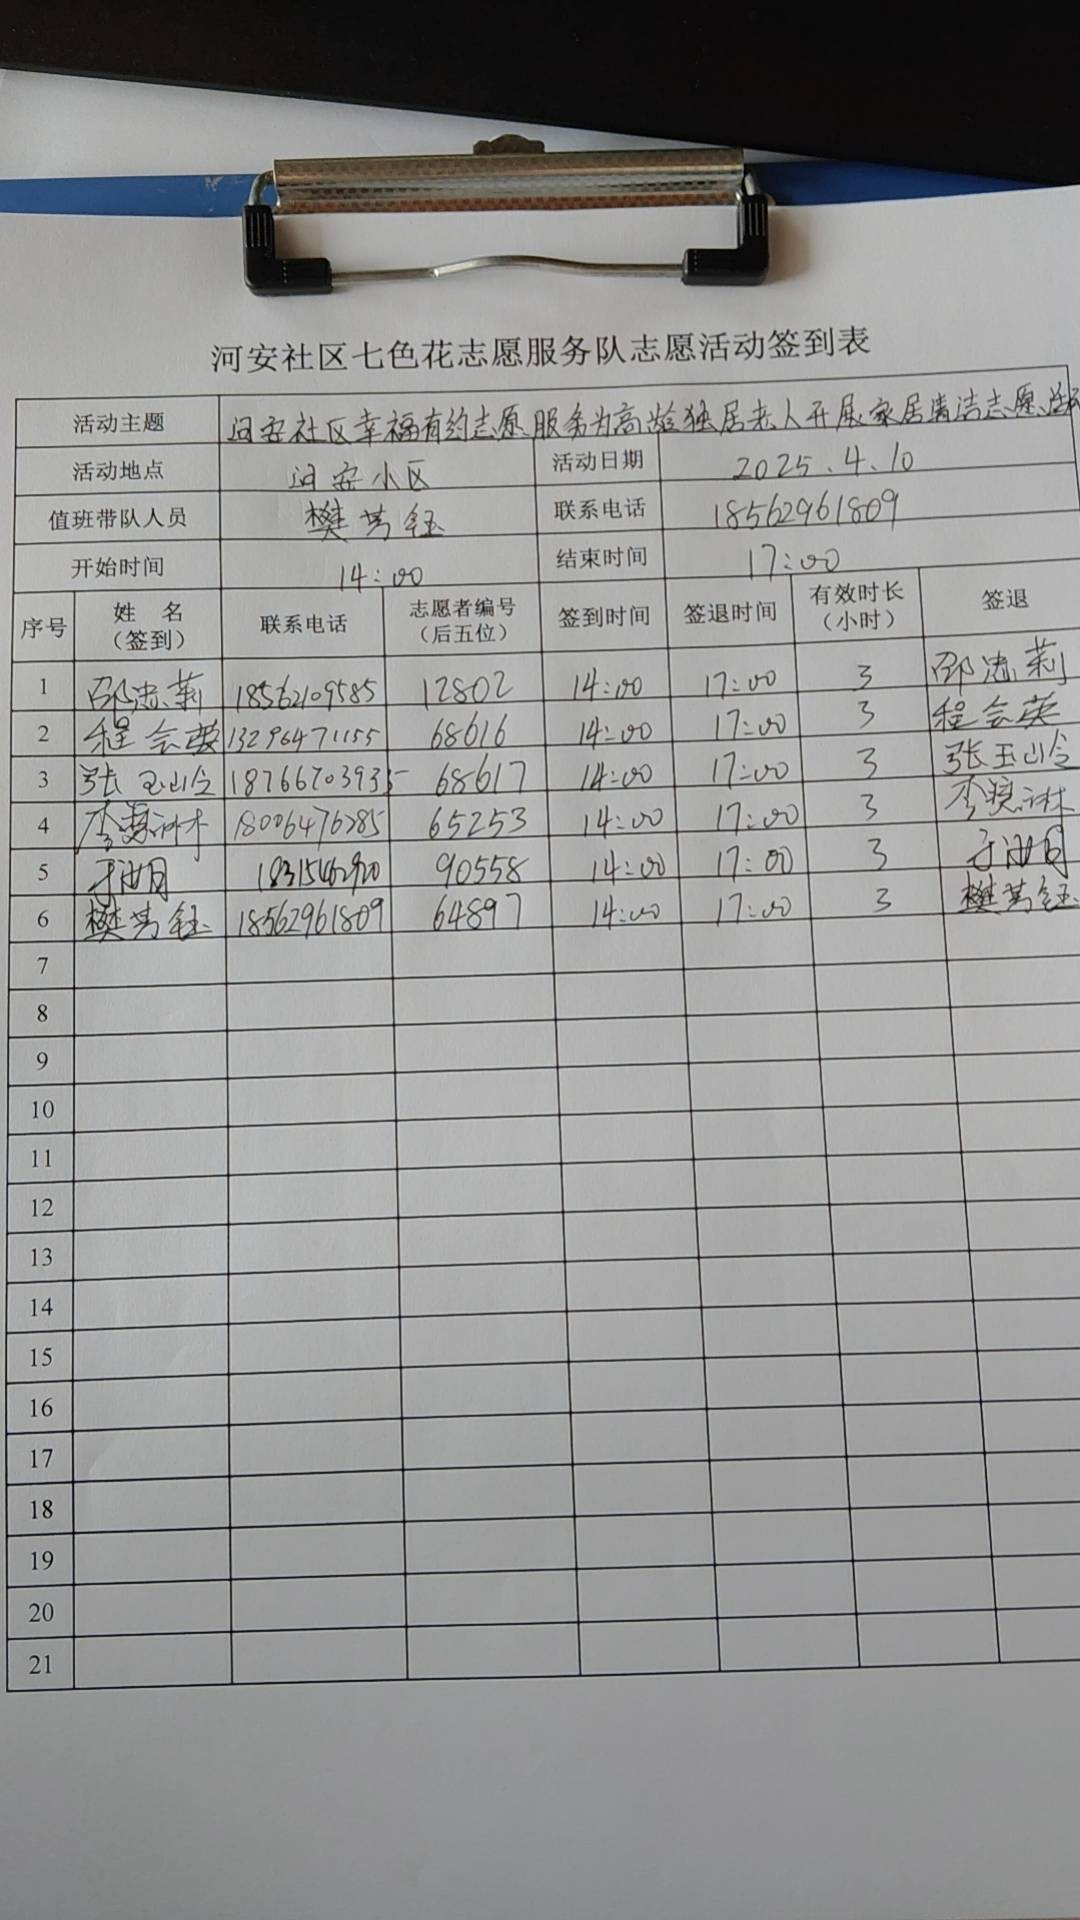 河安社区七色花志愿服务队志愿活动签到表
活动主题 河安社区幸福有约志愿服务为高龄独居老人开展家居清洁志愿活动
活动地点 河安小区 活动日期 2025.4.10
值班带队人员 樊芳钰 联系电话 18562961809
开始时间 14:00 结束时间 17:00
序号 姓 名 (签到) 联系电话 志愿者编号 (后五位) 签到时间 签退时间 有效时长 (小时) 签退
1 邵忠莉 18562109585 12802 14:00 17:00 3 邵忠莉
2 程会英 13296471155 68616 14:00 17:00 3 程会英
3 张玉玲 18766703935 68617 14:00 17:00 3 张玉玲
4 李 18006476285 65253 14:00 17:00 3 李
5 于 90558 14:00 17:00 3 于
6 樊芳钰 18562961809 64897 14:00 17:00 3 樊芳钰
7
8
9
10
11
12
13
14
15
16
17
18
19
20
21